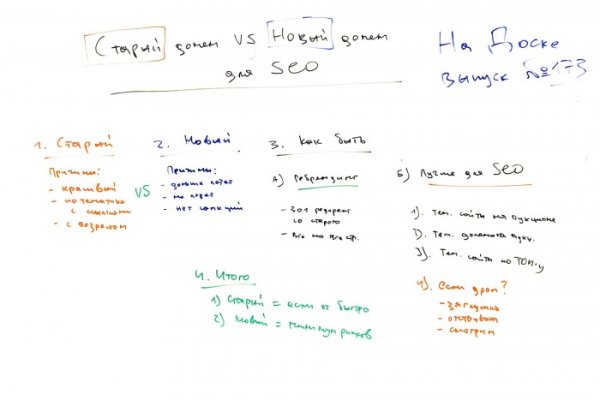 Старый домен VS Новый домен
для SEO
На Доске
выпуск №173
1. Старый
Причины:
- красивый
- по тематике
с ссылками
- с возрастом
VS
2. Новый
Причины:
- дольше
- не
- нет санкций
3. Как быть
А) Ребрендинг
- 301 редирект
со старого
- Все на все стр.
Б) Лучше для SEO
1). Тем. сайты на аукционе
2). Тем. домены аукц.
3). Тем. сайты по ТОП-у
4). если дроп?
- загнулись
-
- смотрим
4. Итого
1) Старый = если оч быстро
2) Новый = минимум рисков